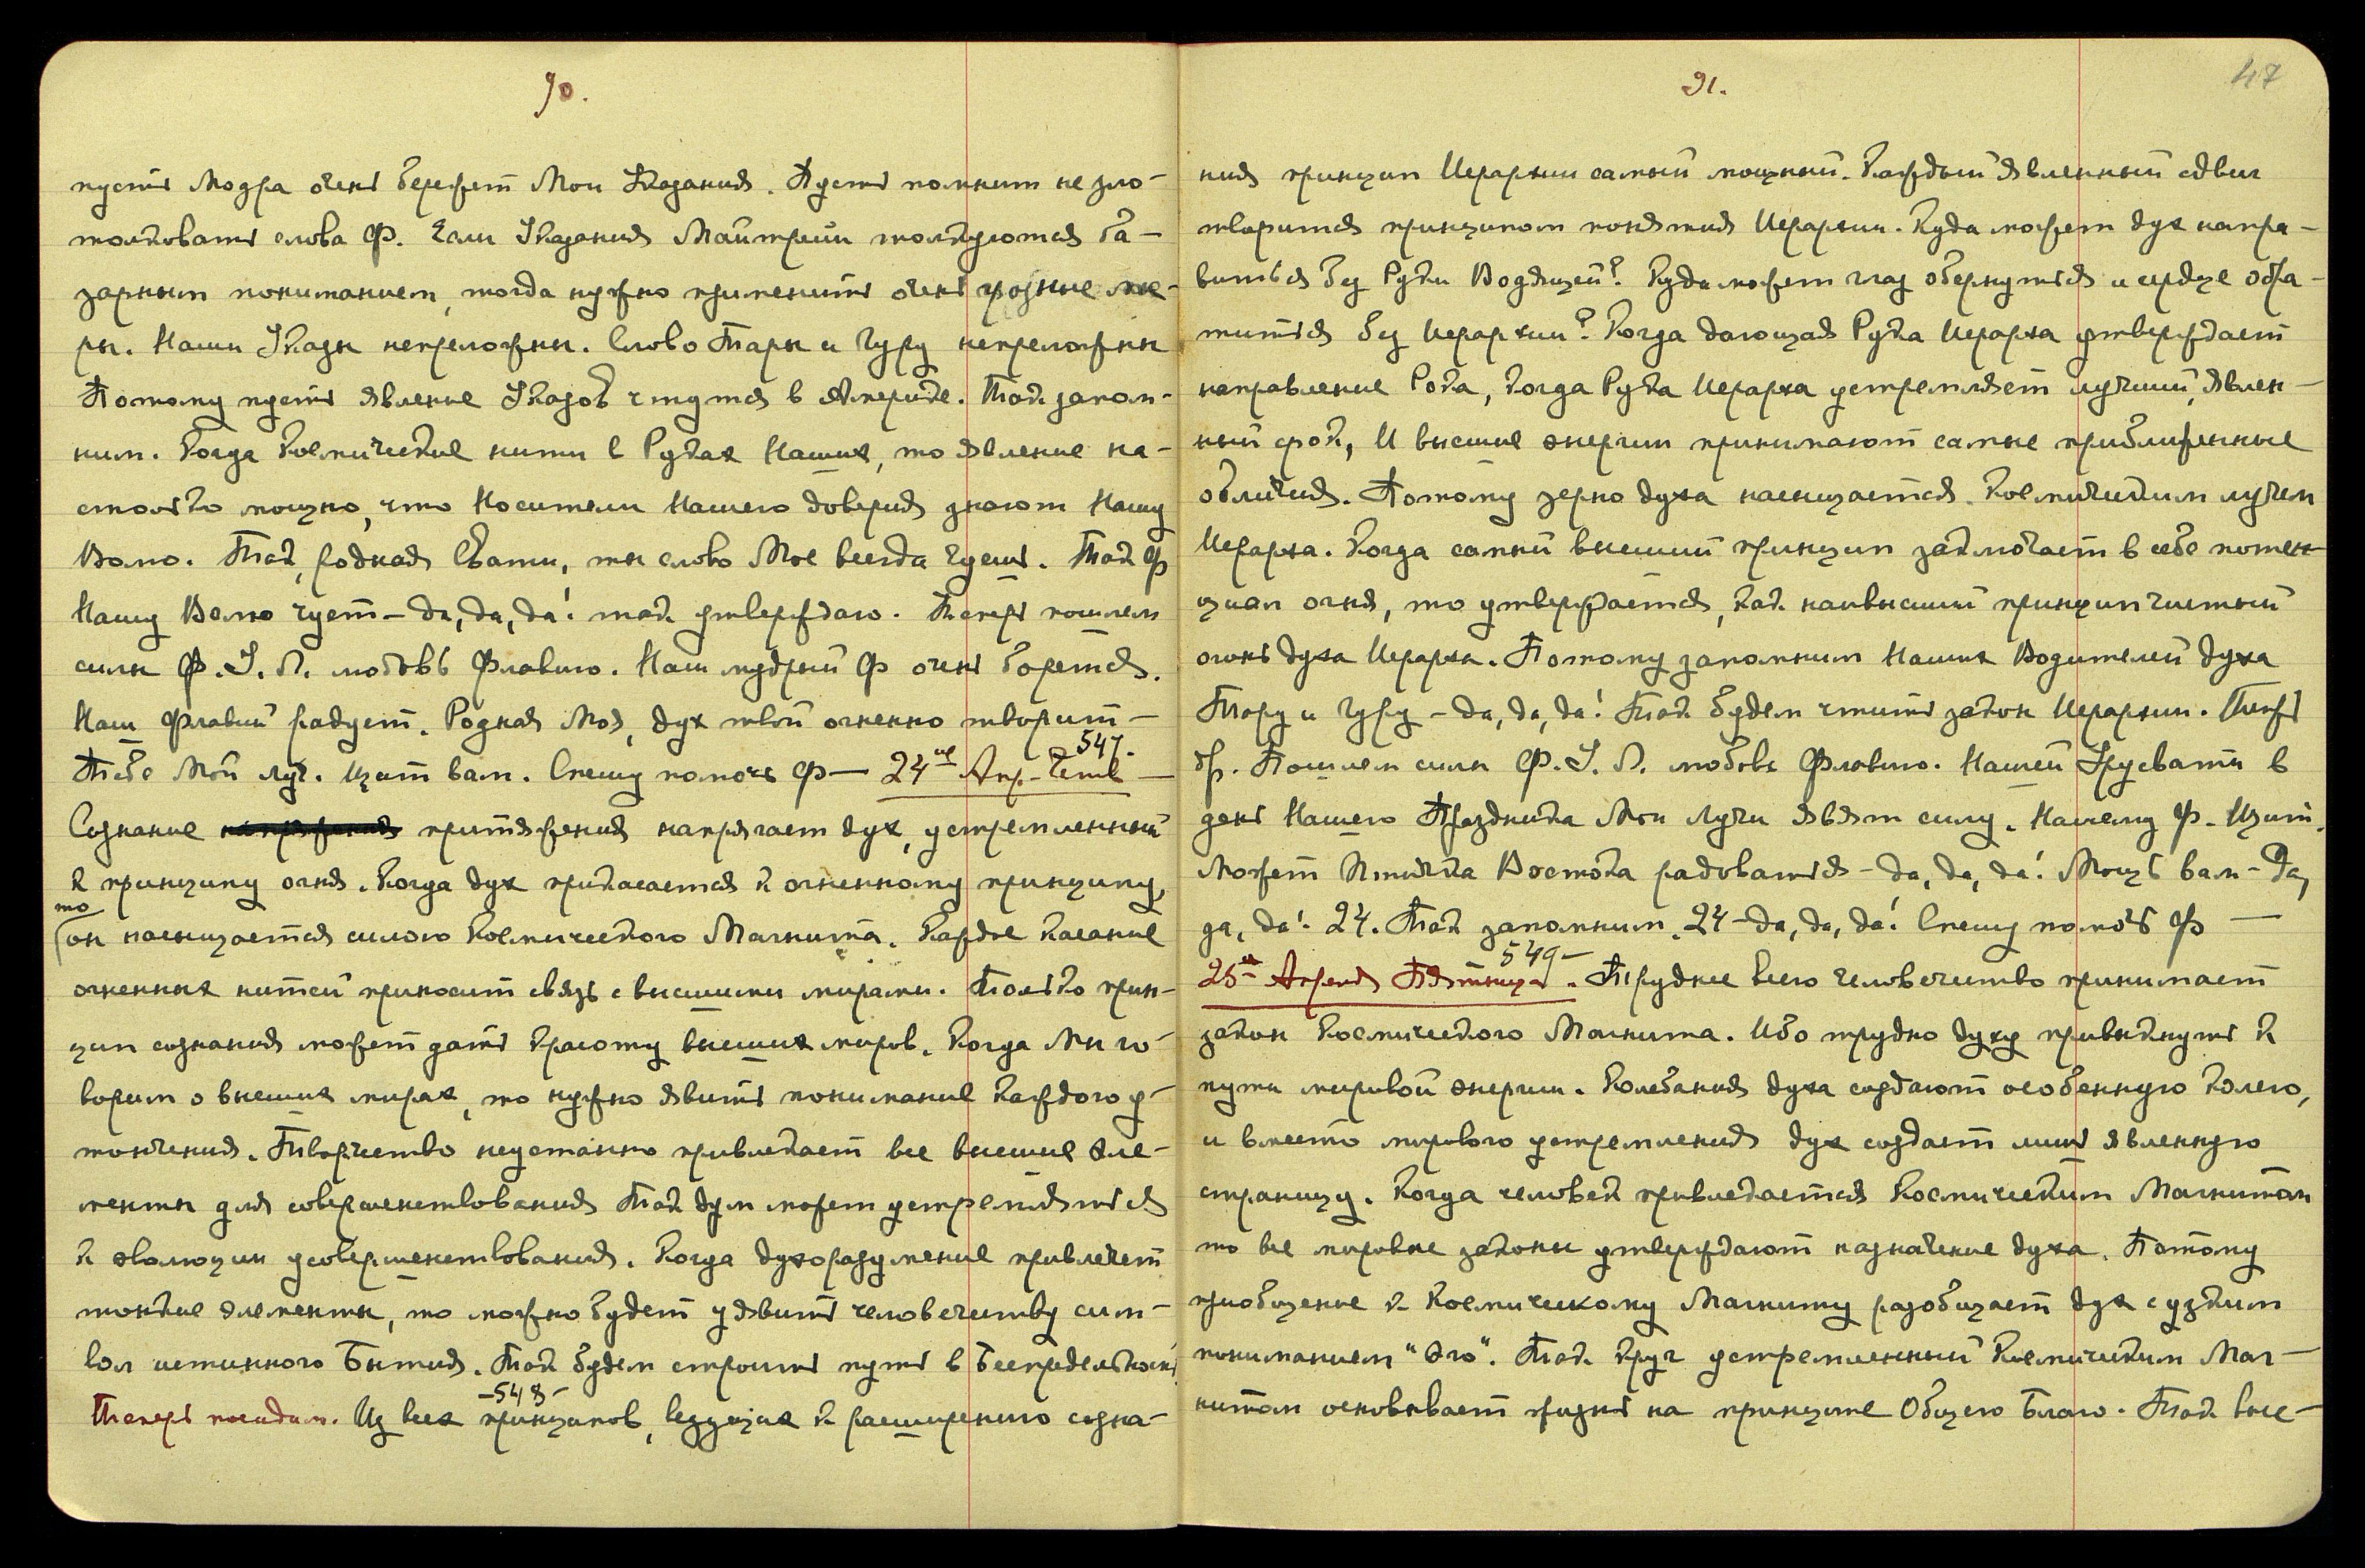 90.
пусть Модра очень бережет Мои Указания. Пусть помнит не зло-
толковать слова Ф. Если Указания Майтрейи толкуются ба-
зарным пониманием, тогда нужно применить очень грозные ме-
ры. Наши Указы непреложны. Слово Тары и Гуру непреложны
Потому пусть явление Указов чтутся в Америке. Так запом-
ним. Когда Космические нити в Руках Наших, то явление на-
столько мощно, что Носители Нашего доверия знают Нашу
Волю. Так, родная Свати, ты слово Мое всегда чуешь. Так Ф
Нашу Волю чует – да, да, да! так утверждаю. Теперь пошлем
силы Ф. У. Л. любовь Флавию. Наш мудрый Ф очень борется.
Наш Флавий радует. Родная Моя, дух твой огненно творит –
Тебе Мой луч. Щит вам. Спешу помочь Ф – 24ое Апр. Четв –
547.
Сознание притяжения напрягает дух, устремленный
к принципу огня. Когда дух прикасается к огненному принципу,
то
он насыщается силою Космического Магнита. Каждое касание
огненных нитей приносит связь с высшими мирами. Только прин-
цип сознания может дать красоту высших миров. Когда Мы го-
ворим о высших мирах, то нужно явить понимание каждого у-
тончения. Творчество неустанно привлекает все высшие эле-
менты для совершенствования Так дух может устремляться
к эволюции усовершенствования. Когда духоразумение привлечет
тонкие элементы, то можно будет уявить человечеству сим-
вол истинного Бытия. Так будем строить путь в Беспредельность
– 548 –
Теперь посидим. Из всех принципов, ведущих к расширению созна-
91.
47
ния принцип Иерархии самый мощный. Каждый явленный сдвиг
творится принципом понятия Иерархии. Куда может дух напра-
виться без Руки Водящей? Куда может глаз обернуться и сердце обра-
титься без Иерархии? Когда дающая Рука Иерарха утверждает
направление Рока, когда Рука Иерарха устремляет лучший, явлен-
ный срок, И высшие энергии принимают самые приближенные
обличия. Потому зерно духа насыщается Космическим лучем
Иерарха. Когда самый высший принцип заключает в себе потен-
циал огня, то утверждается, как наивысший принцип чистый
огонь духа Иерарха. Потому запомним Наших Водителей духа
Тару и Гуру – да, да, да! Так будем чтить закон Иерархии. Теперь
др. Пошлем силы Ф. У. Л. любовь Флавию. Нашей Урусвати в
день Нашего Праздника Мои Лучи явят силу. Нашему Ф. Щит.
Может Птичка Востока радоваться – да, да, да! Мощь вам – да,
да, да! 24. Так запомним. 24 – да, да, да! Спешу помочь Ф –
549 –
25ое Апреля Пятница. Труднее всего человечество принимает
закон Космического Магнита. Ибо трудно духу привыкнуть к
пути мировой энергии. Колебания духа создают особенную колею,
и вместо мирового устремления дух создает лишь явленную
страницу. Когда человек привлекается Космическим Магнитом
то все мировые законы утверждают назначение духа. Потому
приобщение к Космическому Магниту разобщает дух с узким
пониманием "Эго". Так круг устремленный Космическим Маг-
нитом основывает жизнь на принципе Общего Блага. Так выс-